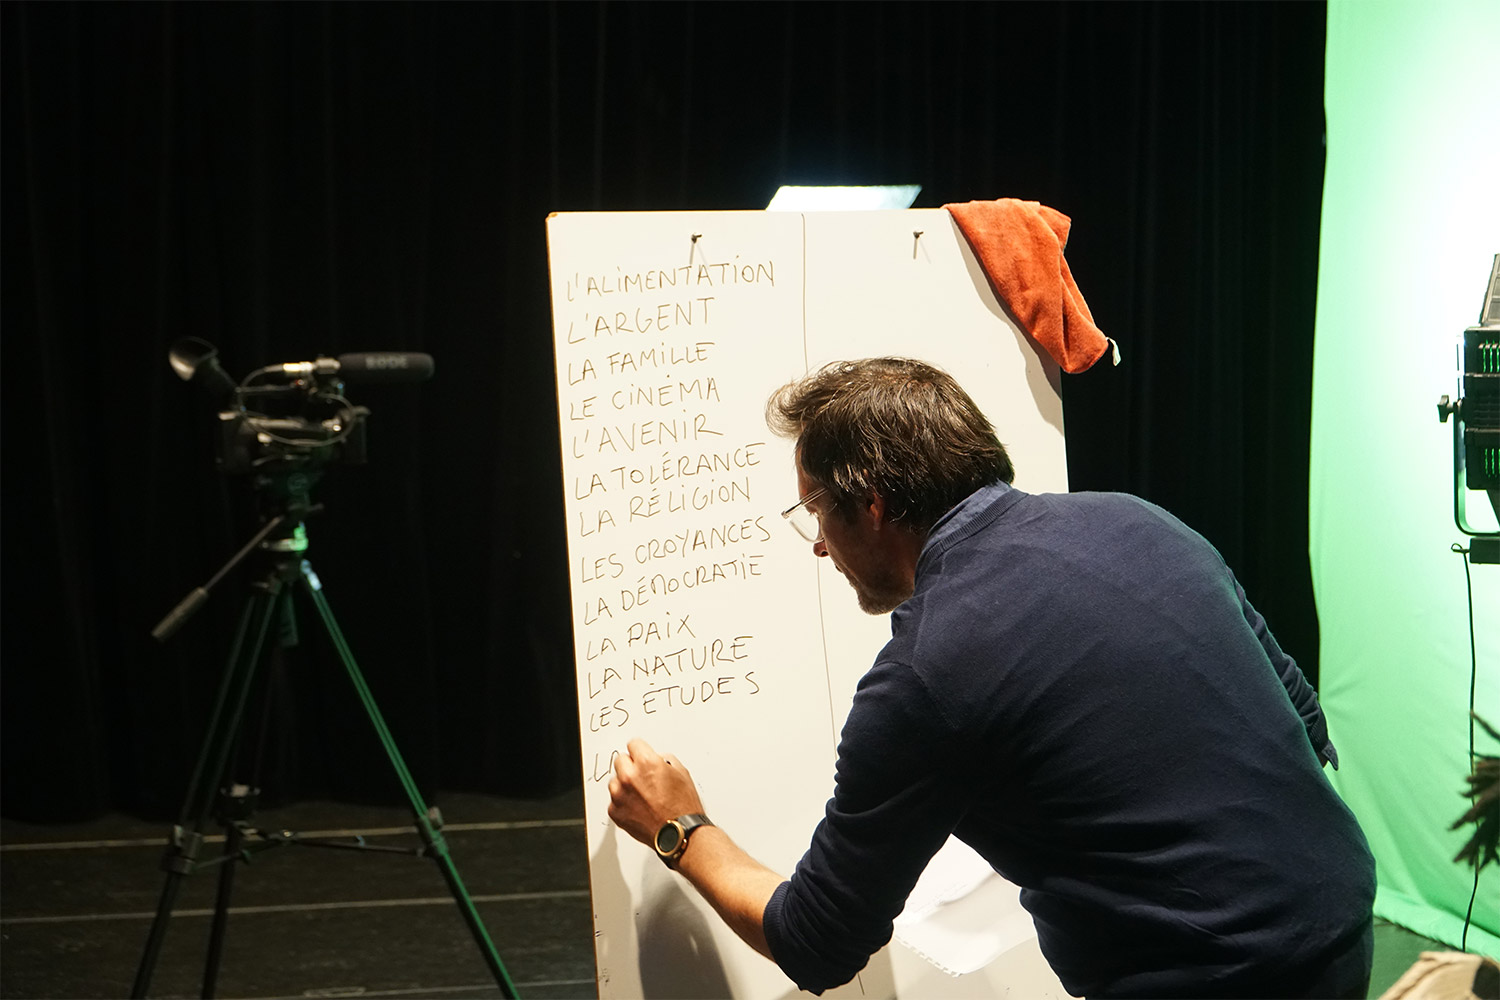 RODE
L'ALIMENTATION
L'ARGENT
LA FAMILLE
LE CINÉMA
L'AVENIR
LA TOLÉRANCE
LA RÉLIGION
LES CROYANCES
LA DÉMOCRATIE
LA PAIX
LA NATURE
LES ÉTUDES
LA